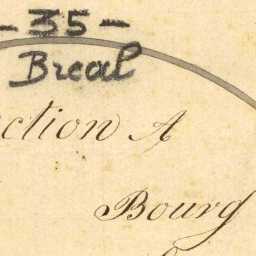 - 35 -
Breal
ction A
Bourg